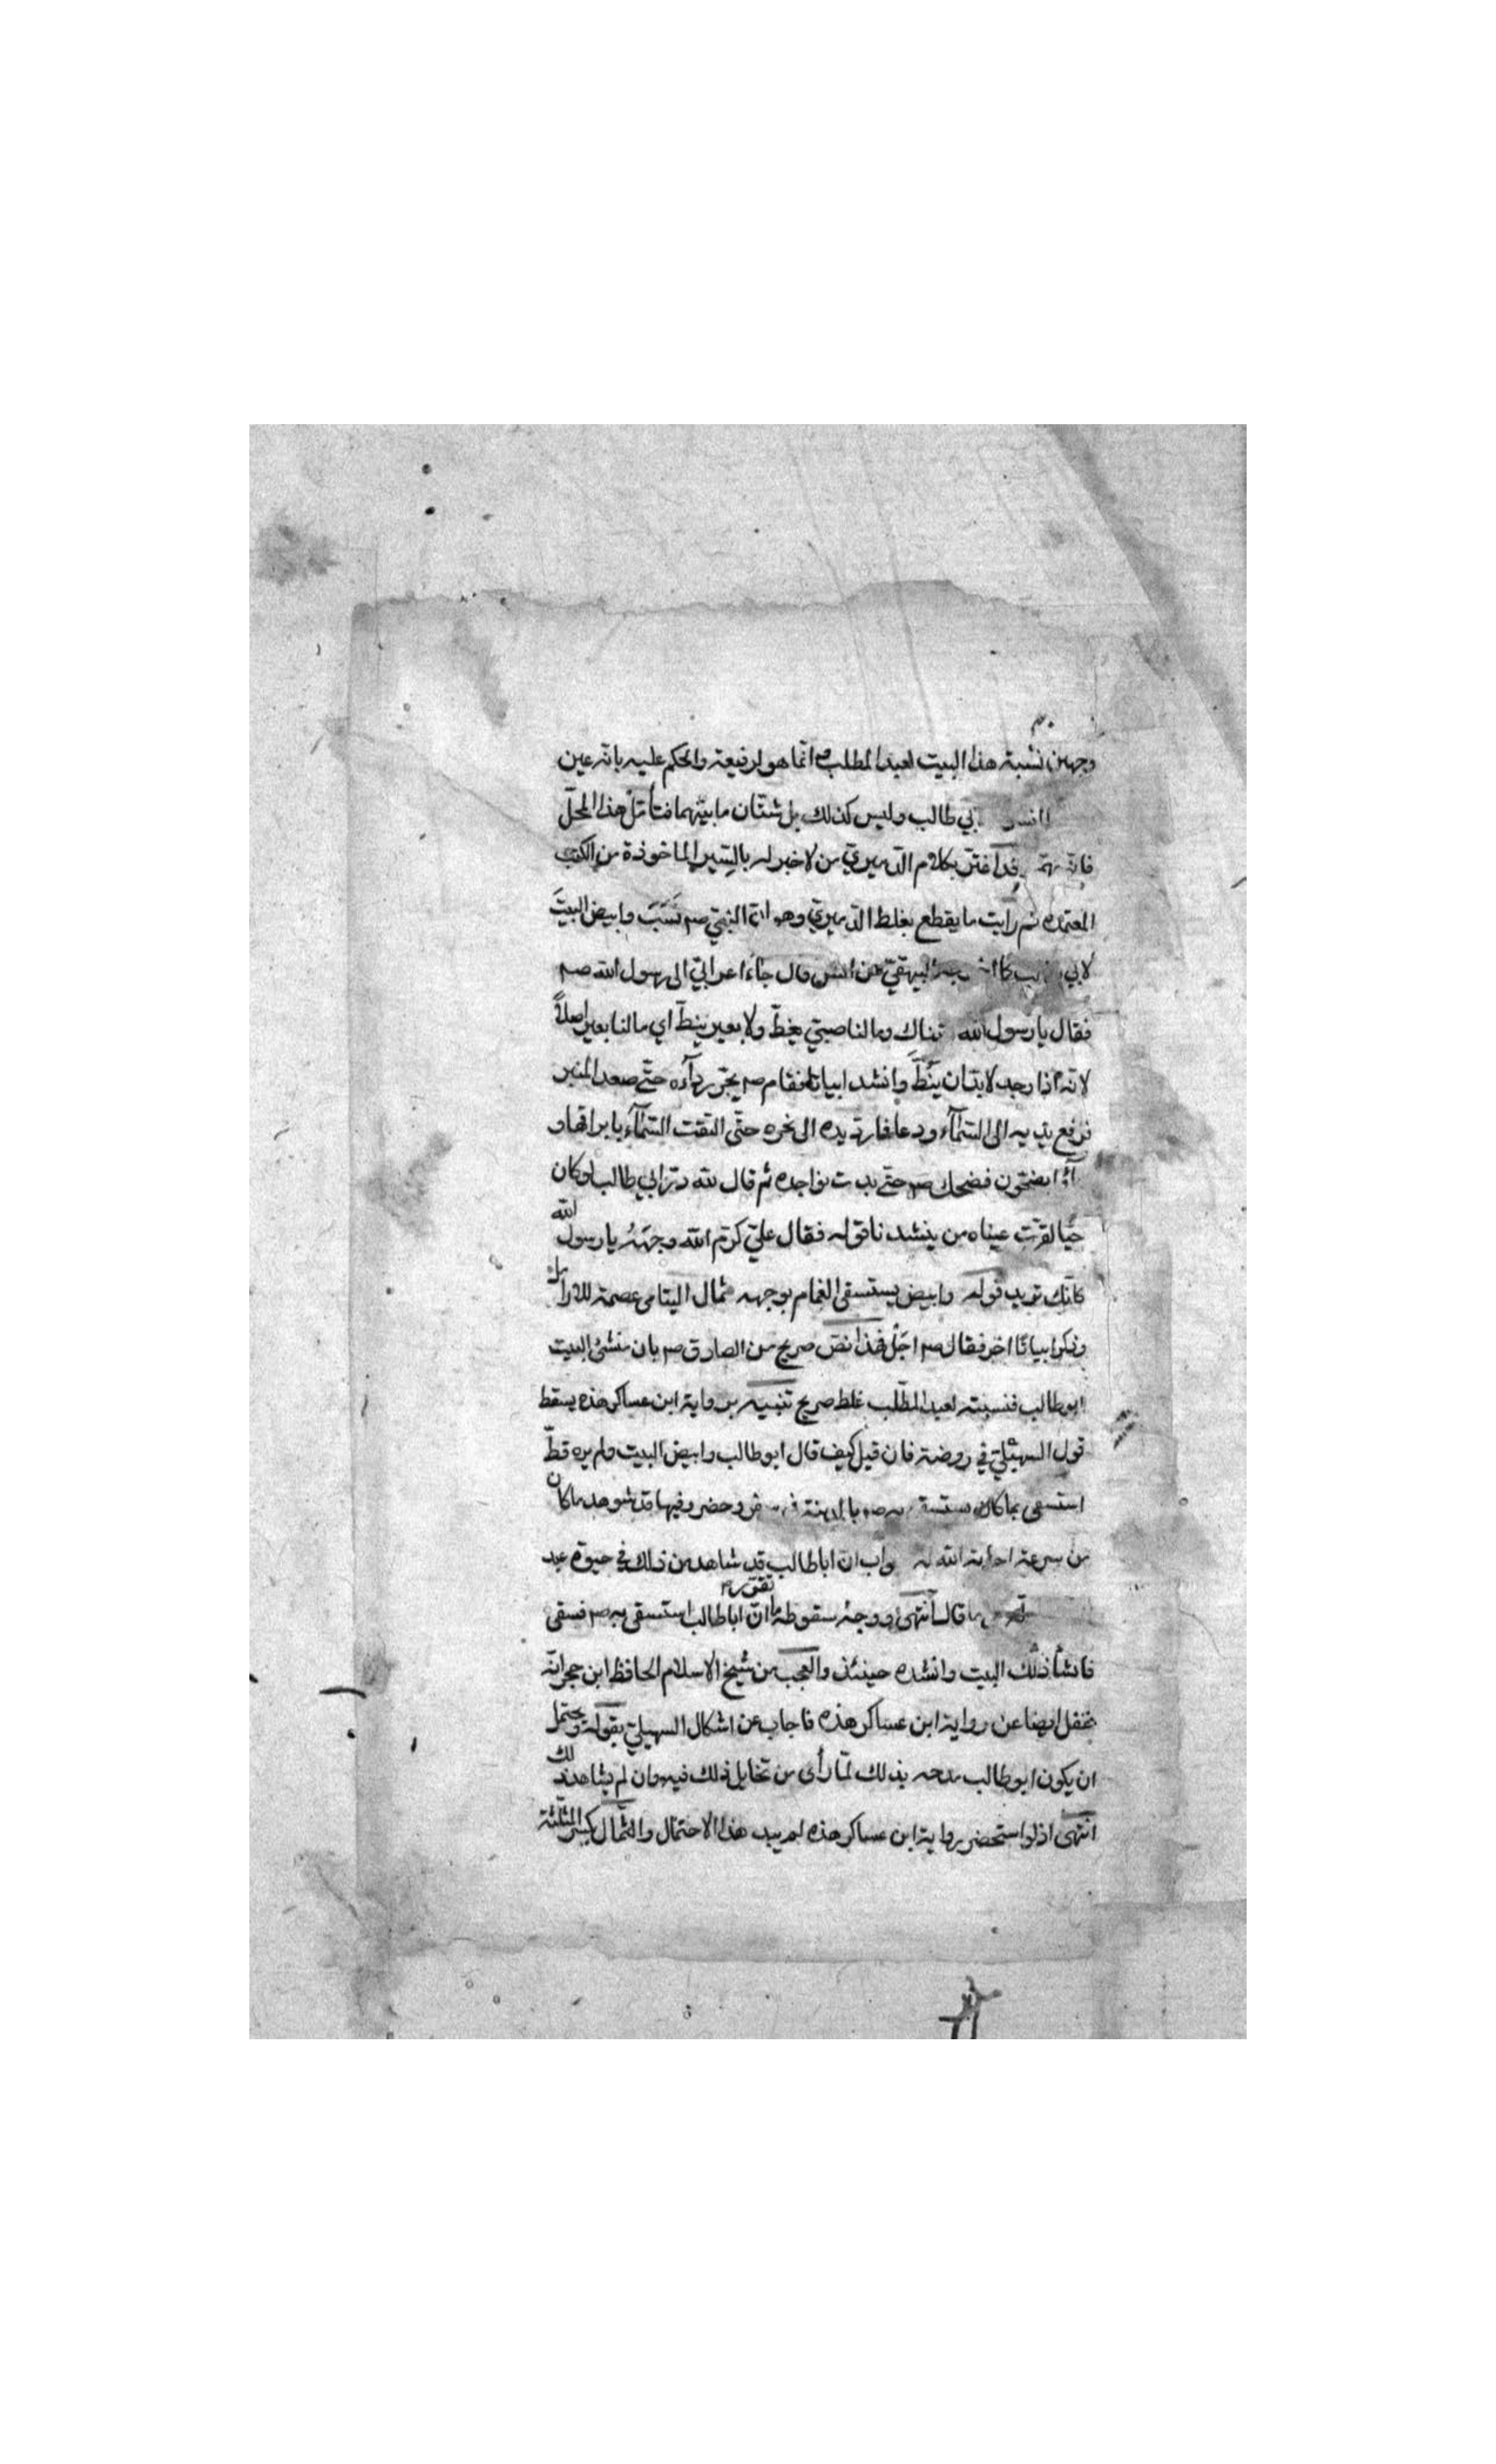 وجهين نسبة هذا البيت لعبد المطلب انما هو لرفيعة والحكم عليه بانه عين
بي طالب وليس كذلك بل شتان ما بينهما فتأمل هذا المحلّ
فانه قد اغتر بكلام الدميري من لا خبر له بالسير الماخوذة من الكتب
المعتمده ثم رأيت ما يقطع بغلط الدميري وهو ان النبي صم نسب وابيض البيت
لابي البيهقي عن انس قال جاء اعرابي الى رسول الله صم
فقال يا رسول الله تناك وما لنا صبي يغط ولا بعير ينط اي ما لنا بعير اصلاً
لانه اذا وجد لا بد ان ينط وانشد ابياتا فقام صم يجر رداءه حتى صعد المنبر
فرفع يديه الى السماء ودعا فما رد يده الى نحره حتى التقت السماء بابراقها و
يضجون فضحك صم حتى بدت نواجده ثم قال لله در ابي طالب لو كان
حيا لقرت عيناه من ينشدنا قوله فقال علي كرم الله وجهه يا رسول الله
كانك تريد قوله وابيض يستسقى الغمام بوجهه ثمال اليتامى عصمة للارامل
وذكر ابياتا اخر فقال صم اجل فهذا نص صريح من الصادق صم بان منشئ البيت
ابو طالب فنسبته لعبد المطلب غلط صريح تنبيه برواية ابن عساكر هذه يسقط
قول السهيلي في روضة فان قيل كيف قال ابو طالب وابيض البيت ولم يره قط
استسقى بما كان صم بالمدينة في سفر وحضر وفيها قد شوهد ما كان
من سرعة اجابة الله له واب ان ابا طالب قد شاهد من ذلك في حيوة عبد
ما قال انتهى ووجه سقوطه ما تقرر ان ابا طالب استسقى به صم فسقى
فانشأ ذلك البيت وانشده حينئذ والعجب من شيخ الاسلام الحافظ ابن حجر انه
غفل ايضا عن رواية ابن عساكر هذه فاجاب عن اشكال السهيلي بقوله ويحتمل
ان يكون ابو طالب مدحه بذلك لما رأى من تخايل ذلك فيه وان لم يشاهد ذلك
انتهى اذ لو استحضر رواية ابن عساكر هذه لم يبد هذا الاحتمال والثمال بكسر المثلثة